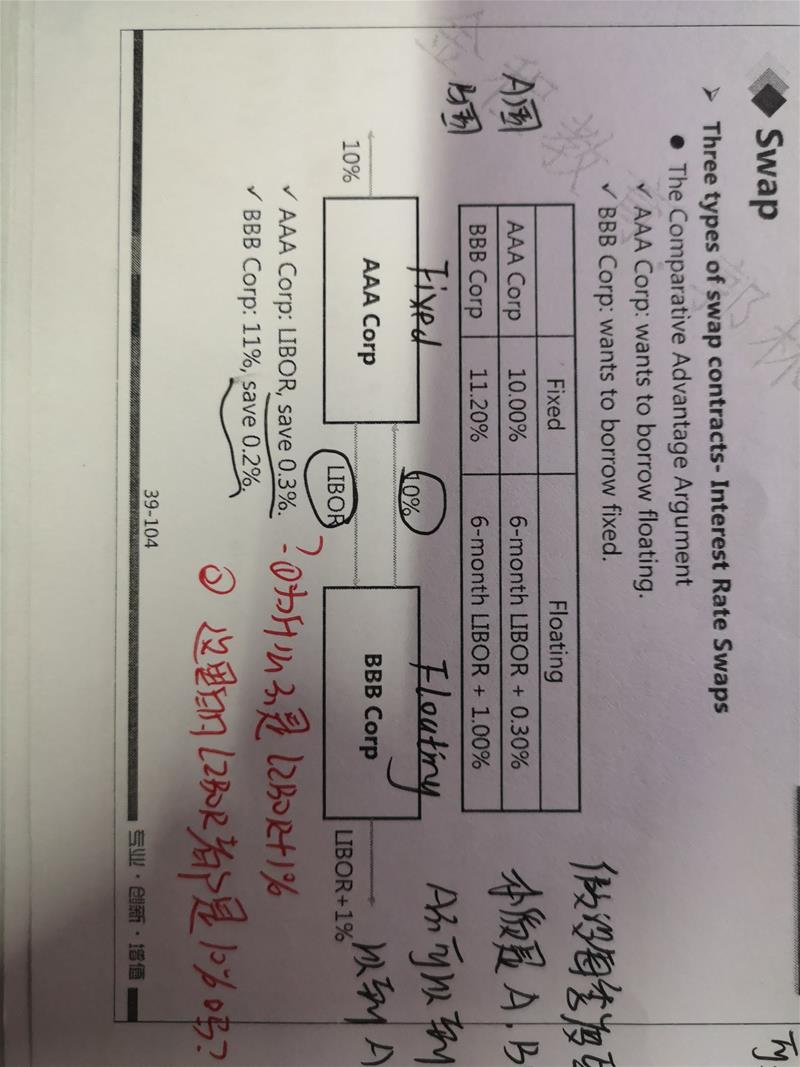 Swap
Three types of swap contracts- Interest Rate Swaps
The Comparative Advantage Argument
✓ AAA Corp: wants to borrow floating.
✓ BBB Corp: wants to borrow fixed.
Fixed Floating
A国 AAA Corp 10.00% 6-month LIBOR + 0.30%
B国 BBB Corp 11.20% 6-month LIBOR + 1.00%
本质是 A、B
Fixed Floating
10%
10% AAA Corp BBB Corp LIBOR+1%
LIBOR
? ①为什么不是 LIBOR+1%
✓ AAA Corp: LIBOR, save 0.3%.
✓ BBB Corp: 11%, save 0.2%.
② 这里的 LIBOR 都是 10% 吗?
39-104
专业·创新·增值